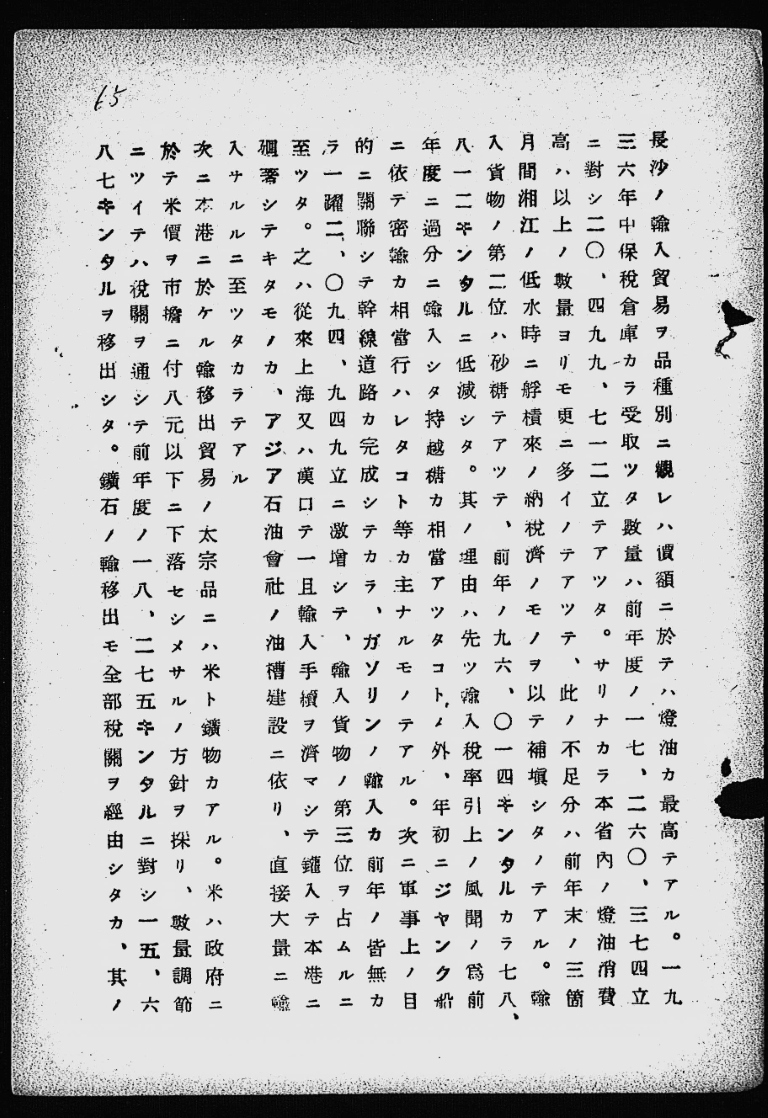 65
長沙ノ輸入貿易ヲ品種別ニ觀レハ價額ニ於テハ燈油カ最高テアル。一九
三六年中保稅倉庫カラ受取ツタ數量ハ前年度ノ一七、二六〇、三七四立
ニ對シ二〇、四九九、七一二立テアツタ。サリナカラ本省內ノ燈油消費
高ハ以上ノ數量ヨリモ更ニ多イノテアツテ、此ノ不足分ハ前年末ノ三箇
月間湘江ノ低水時ニ艀積來ノ納稅濟ノモノヲ以テ補塡シタノテアル。輸
入貨物ノ第二位ハ砂糖テアツテ、前年ノ九六、〇一四キンタルカラ七八、
八一二キンタルニ低減シタ。其ノ理由ハ先ツ輸入稅率引上ノ風聞ノ爲前
年度ニ過分ニ輸入シタ持越糖カ相當アツタコトノ外、年初ニジヤンク船
ニ依テ密輸カ相當行ハレタコト等カ主ナルモノテアル。次ニ軍事上ノ目
的ニ關聯シテ幹線道路カ完成シテカラ、ガソリンノ輸入カ前年ノ皆無カ
ラ一躍二、〇九四、九四九立ニ激增シテ、輸入貨物ノ第三位ヲ占ムルニ
至ツタ。之ハ從來上海又ハ漢口テ一且輸入手續ヲ濟マシテ鑵入テ本港ニ
到著シテキタモノカ、アジア石油會社ノ油槽建設ニ依リ、直接大量ニ輸
入サルルニ至ツタカラテアル
次ニ本港ニ於ケル輸移出貿易ノ太宗品ニハ米ト鑛物カアル。米ハ政府ニ
於テ米價ヲ市擔ニ付八元以下ニ下落セシメサルノ方針ヲ採リ、數量調節
ニツイテハ稅關ヲ通シテ前年度ノ一八、二七五キンタルニ對シ一五、六
八七キンタルヲ移出シタ。鑛石ノ輸移出モ全部稅關ヲ經由シタカ、其ノ